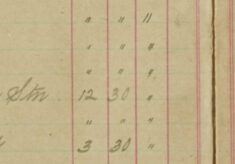 " " 11
" " "
" " "
Stn 12 30 "
" " "
3 30 "